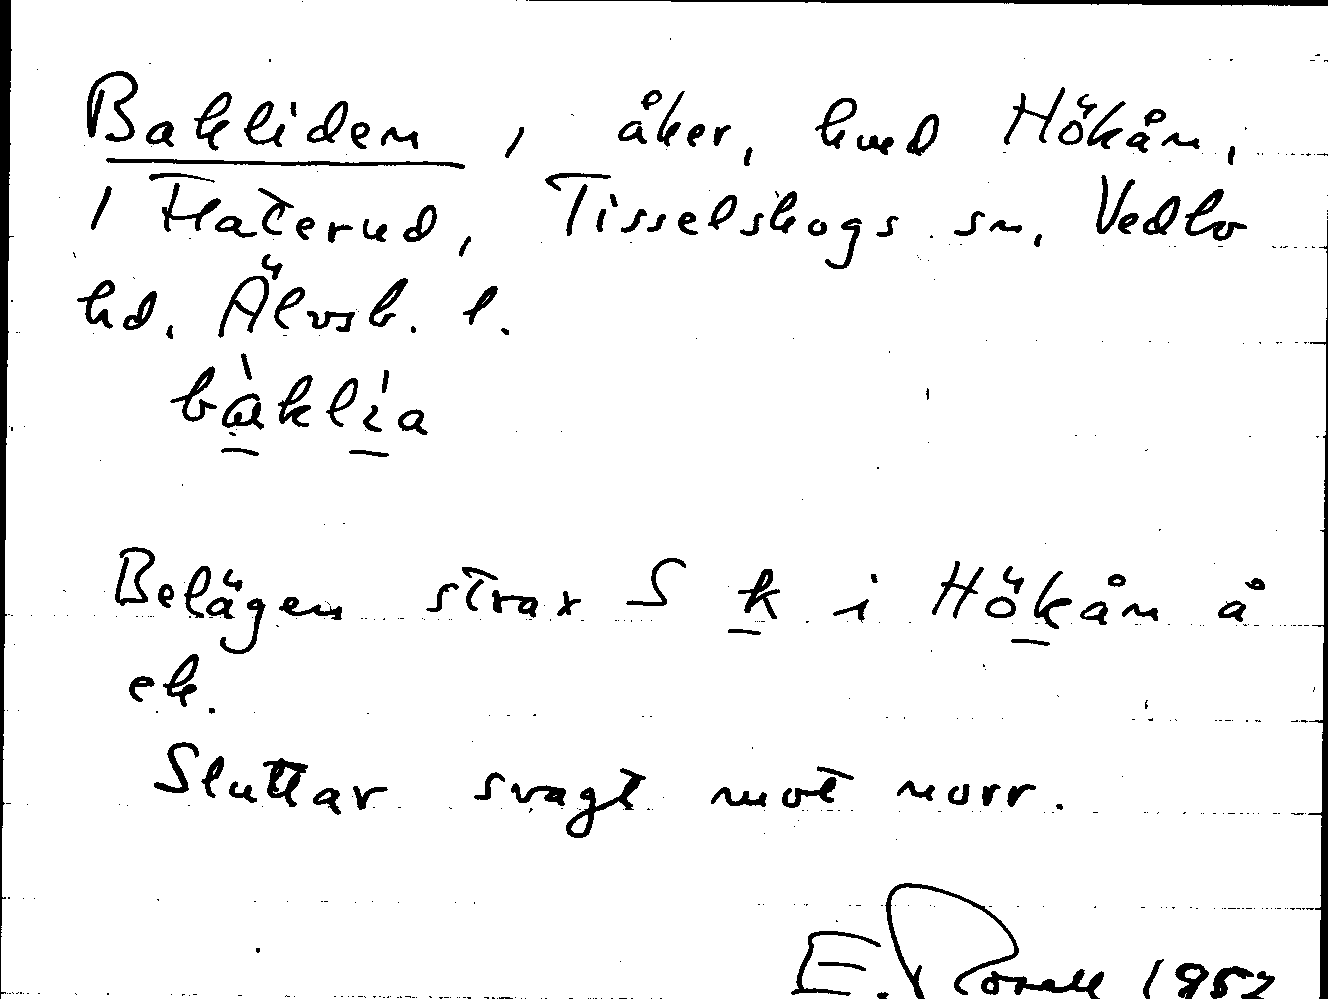 Bakliden, åker, hmd Hökån,
1 Haterud, Tisselskogs sn, Vedbo
hd. Älvsb. l.
bàklı̀a
Belägen strax S k i Hökån å
ek.
Sluttar svagt mot norr.
E. 1952